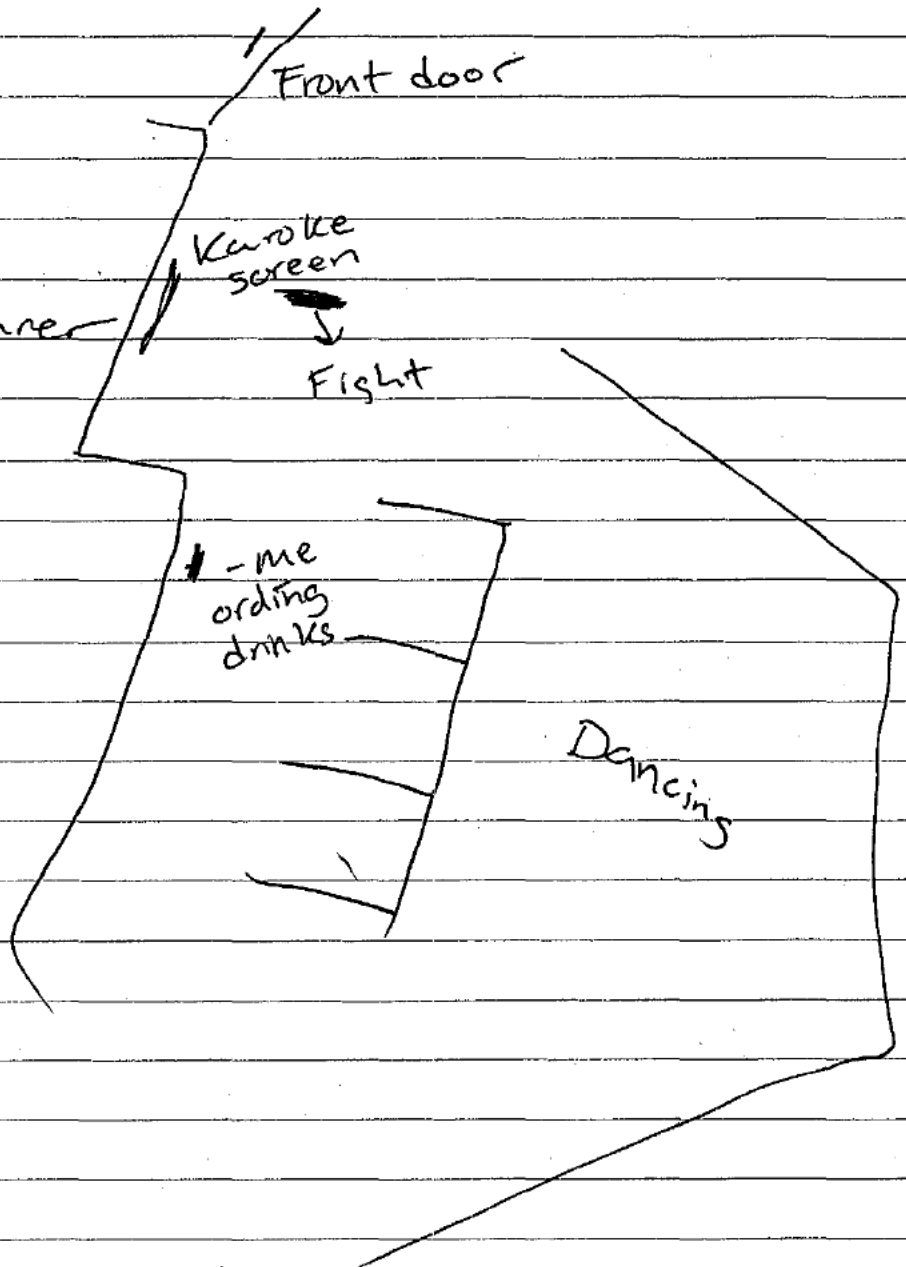 Front door
Karoke
screen
Fight
-me
ording
drinks
Dancing